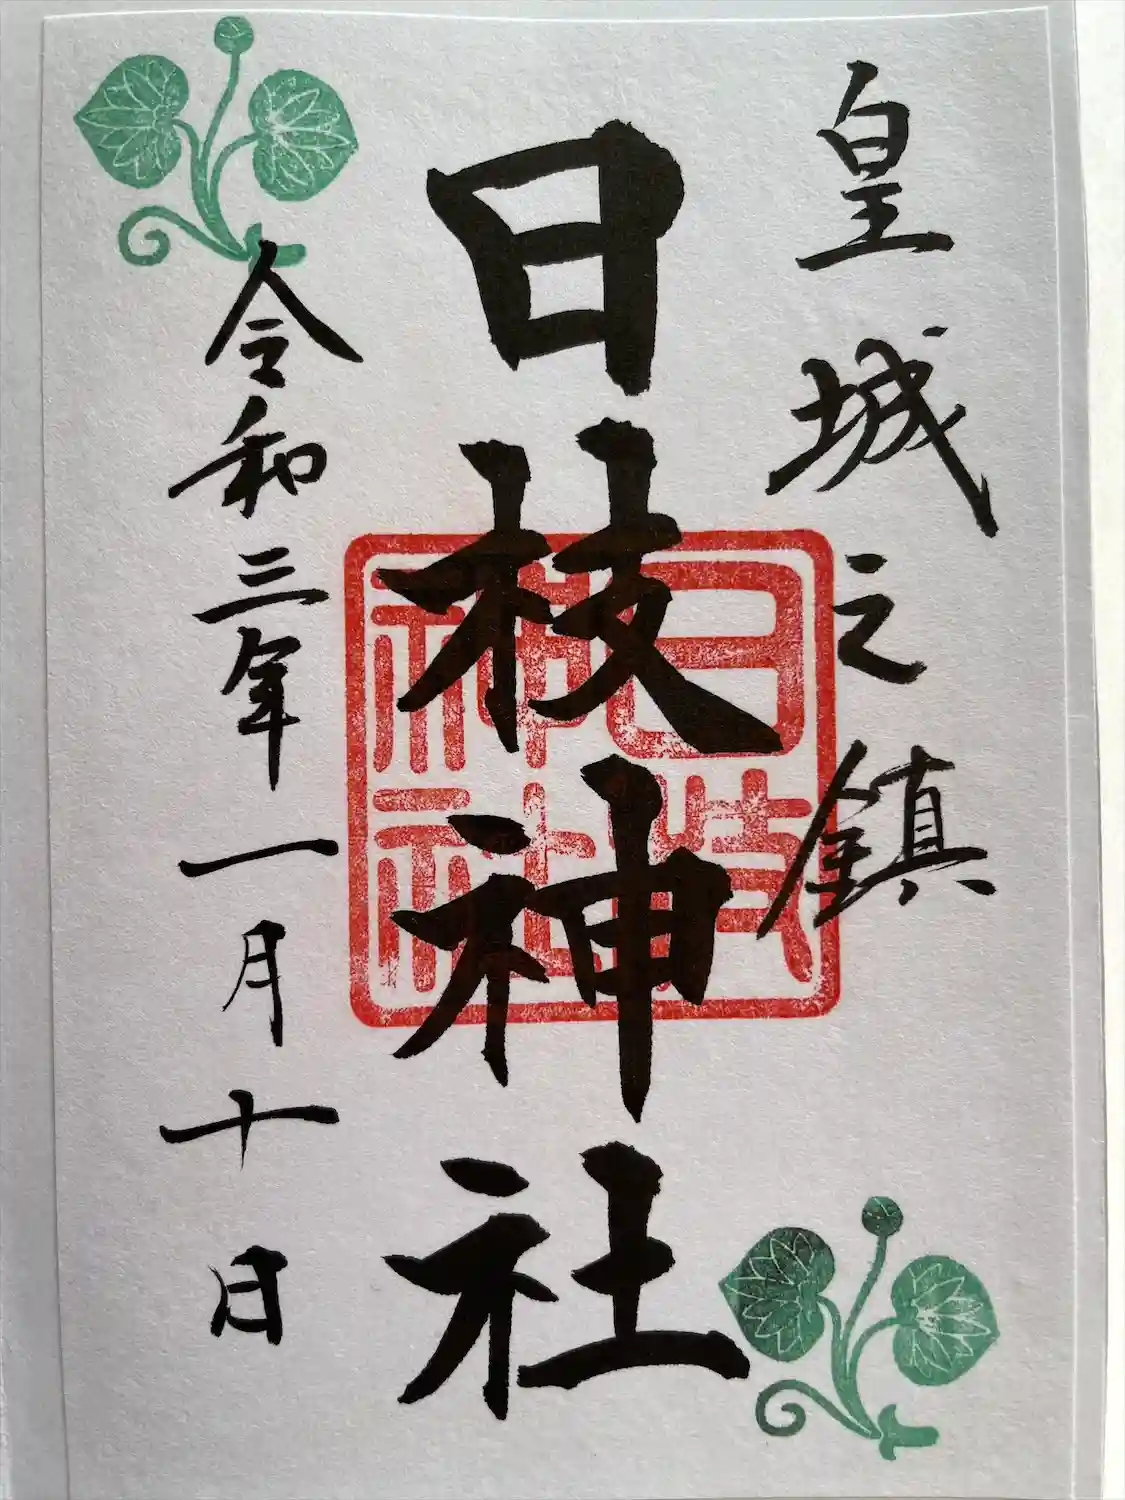 皇城之鎮
日枝神社
日枝神社
令和三年一月十日